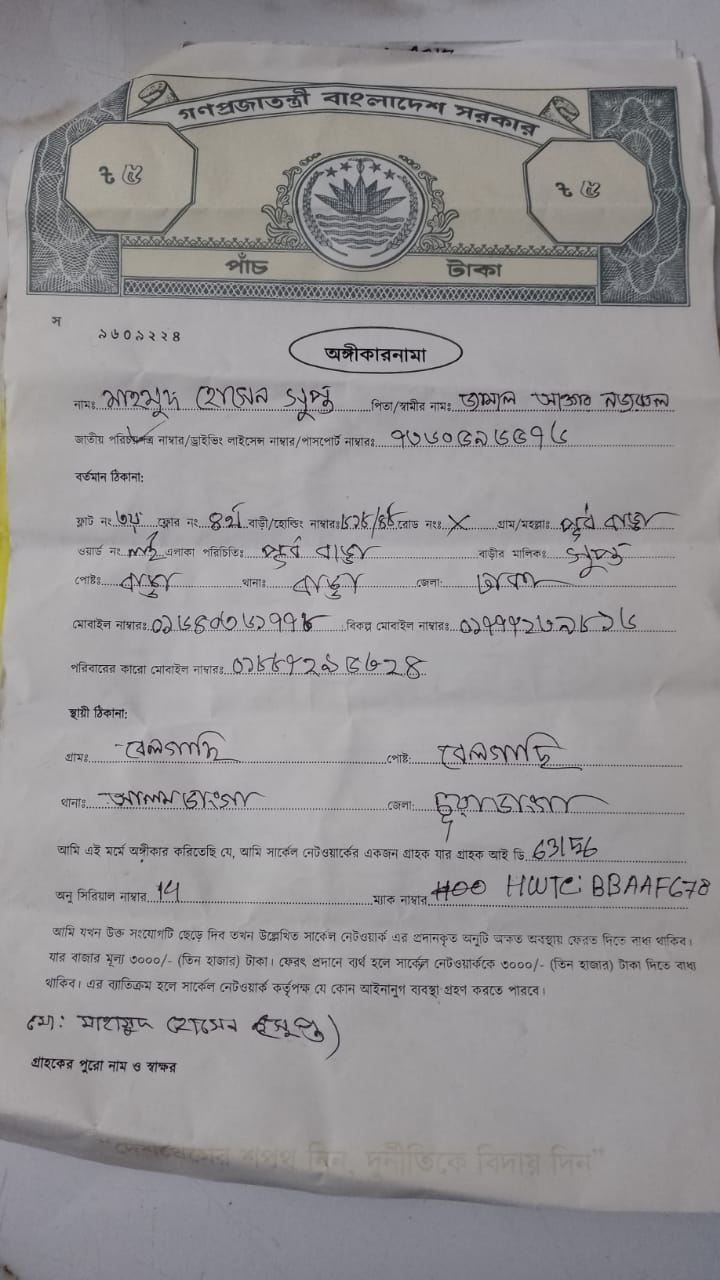 গণপ্রজাতন্ত্রী বাংলাদেশ সরকার
৳ ৫ ৳ ৫
পাঁচ টাকা
স ৯৬০৯২২৪
অঙ্গীকারনামা
নামঃ মাহমুদ হোসেন পিতা/স্বামীর নামঃ জামাল
জাতীয় পরিচয়পত্র নাম্বার/ড্রাইভিং লাইসেন্স নাম্বার/পাসপোর্ট নাম্বারঃ
বর্তমান ঠিকানা:
ফ্লাট নং ফ্লোর নং ৪র্থ বাড়ী/হোল্ডিং নাম্বারঃ রোড নংঃ X গ্রাম/মহল্লাঃ পূর্ব বাড্ডা
ওয়ার্ড নং নাই এলাকা পরিচিতিঃ পূর্ব বাড্ডা বাড়ীর মালিকঃ
পোষ্টঃ বাড্ডা থানাঃ বাড্ডা জেলা: ঢাকা
মোবাইল নাম্বারঃ বিকল্প মোবাইল নাম্বারঃ
পরিবারের কারো মোবাইল নাম্বারঃ
স্থায়ী ঠিকানা:
গ্রামঃ বেলগাছি পোষ্ট: বেলগাছি
থানাঃ আলমডাংগা জেলা: চুয়াডাংগা
আমি এই মর্মে অঙ্গীকার করিতেছি যে, আমি সার্কেল নেটওয়ার্কের একজন গ্রাহক যার গ্রাহক আই ডি
অনু সিরিয়াল নাম্বার 14 ম্যাক নাম্বার HWTC: BBAAF678
আমি যখন উক্ত সংযোগটি ছেড়ে দিব তখন উল্লেখিত সার্কেল নেটওয়ার্ক এর প্রদানকৃত অনুটি অক্ষত অবস্থায় ফেরত দিতে বাধ্য থাকিব।
যার বাজার মূল্য ৩০০০/- (তিন হাজার) টাকা। ফেরৎ প্রদানে ব্যর্থ হলে সার্কেল নেটওয়ার্ককে ৩০০০/- (তিন হাজার) টাকা দিতে বাধ্য
থাকিব। এর ব্যতিক্রম হলে সার্কেল নেটওয়ার্ক কর্তৃপক্ষ যে কোন আইনানুগ ব্যবস্থা গ্রহণ করতে পারবে।
মো: মাহামুদ হোসেন
গ্রাহকের পুরো নাম ও স্বাক্ষর
"দেশপ্রেমের শপথ নিন, দুর্নীতিকে বিদায় দিন"